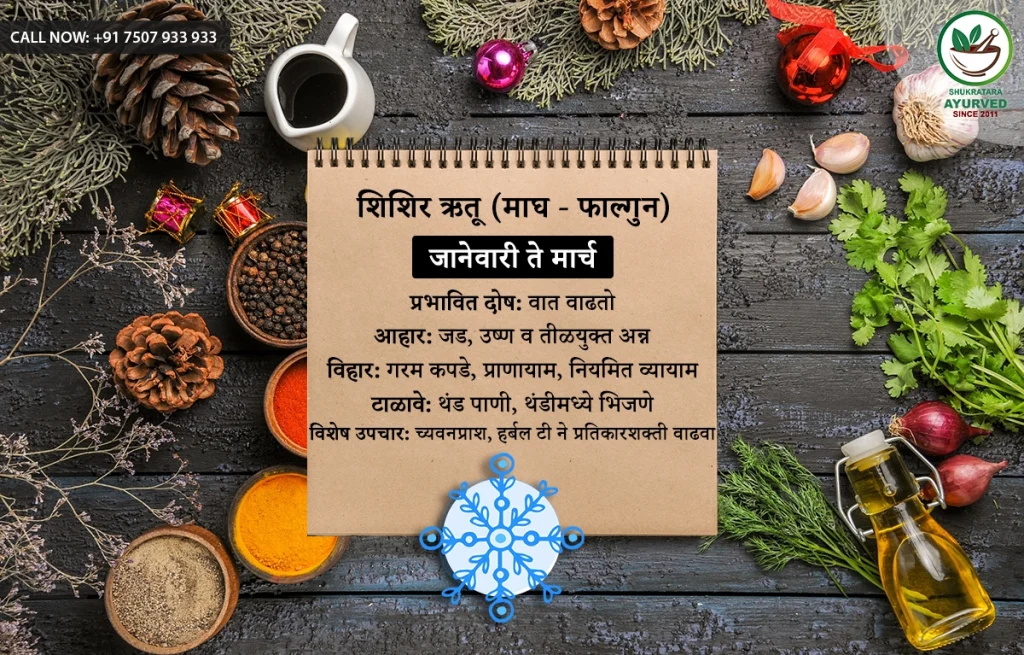 CALL NOW: +91 7507 933 933
SHUKRATARA
AYURVED
SINCE 2011
शिशिर ऋतू (माघ - फाल्गुन)
जानेवारी ते मार्च
प्रभावित दोष: वात वाढतो
आहार: जड, उष्ण व तीळयुक्त अन्न
विहार: गरम कपडे, प्राणायाम, नियमित व्यायाम
टाळावे: थंड पाणी, थंडीमध्ये भिजणे
विशेष उपचार: च्यवनप्राश, हर्बल टी ने प्रतिकारशक्ती वाढवा